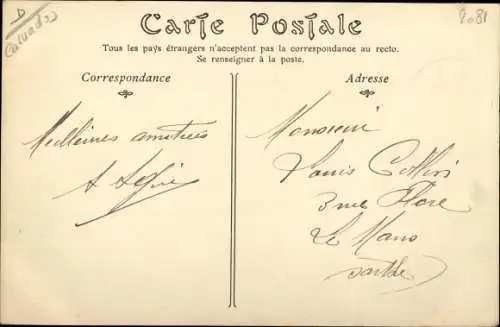 D
(Calvados)
2081
Carte Postale
Tous les pays étrangers n'acceptent pas la correspondance au recto.
Se renseigner à la poste.
Correspondance
Meilleures amitiés
Adresse
Monsieur
Louis
3 rue Flore
Le Mans
Sarthe